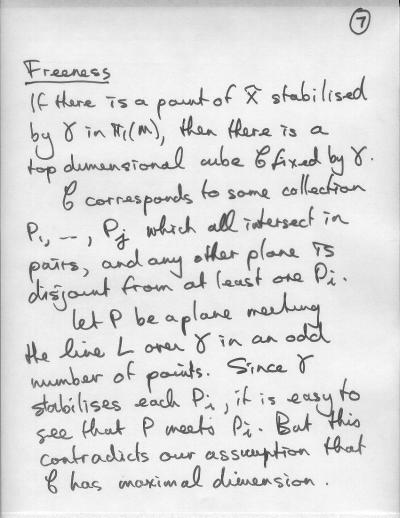 7
Freeness
If there is a point of X̃ stabilised
by γ in π₁(M), then there is a
top dimensional cube C fixed by γ.
C corresponds to some collection
P₁, ---, Pⱼ which all intersect in
pairs, and any other plane is
disjoint from at least one Pᵢ.
Let P be a plane meeting
the line L over γ in an odd
number of points. Since γ
stabilises each Pᵢ, it is easy to
see that P meets Pᵢ. But this
contradicts our assumption that
C has maximal dimension.